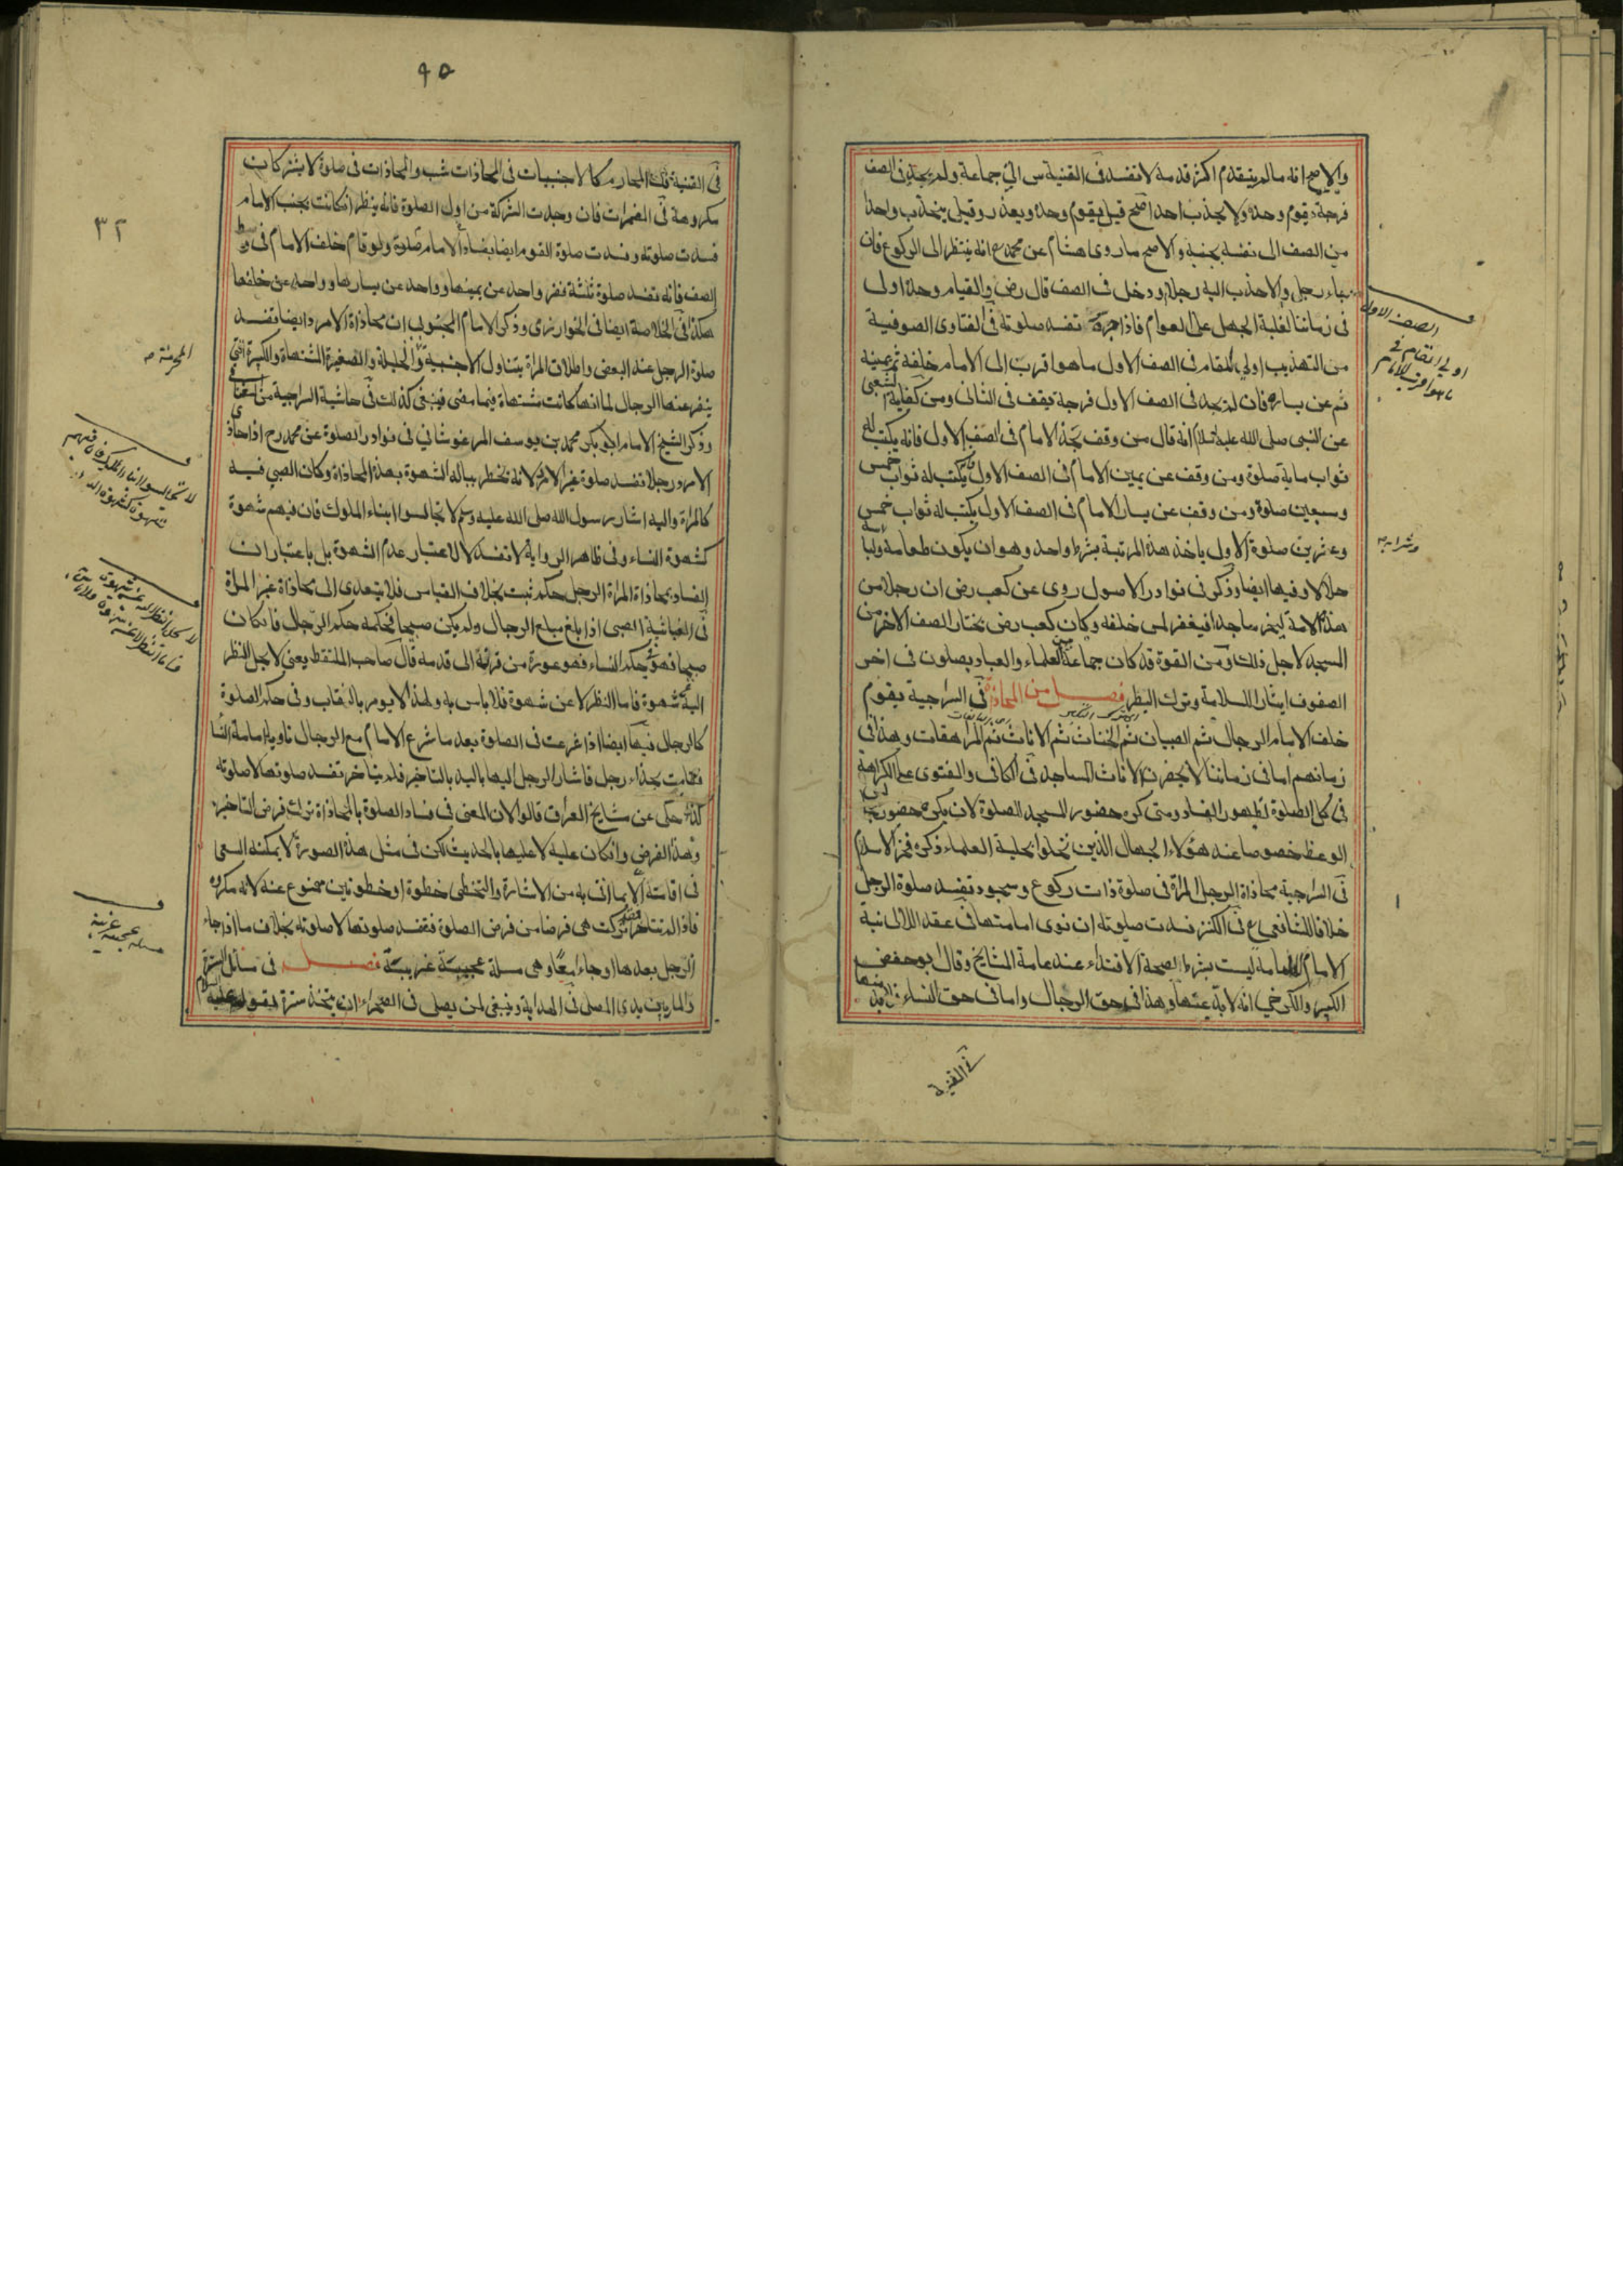 والاصح انه مالم يتقدم اكثر قدمه لا تفسد فى القنية س اتى جماعة ولم يجد فى الصف
فرجة يقوم وحده ولا يجذب احدا اصح قيل يقوم وحده ويعذر وقيل يجذب واحدا
من الصف الى نفسه بجنبه والاصح ما روى هشام عن محمد ع انه ينتظر الى الركوع فان
جاء رجل والا جذب اليه رجلا ودخل فى الصف قال رض والقيام وحده اولى
فى زماننا لغلبة الجهل على العوام فاذا جره تفسد صلوته فى الفتاوى الصوفية
من التهذيب اولى المقام فى الصف الاول ما هو اقرب الى الامام خلفه ثم يمينه
ثم عن يساره فان لم يجد فى الصف الاول فرجة يقف فى الثانى ومن كفاية الشعبى
عن النبى صلى الله عليه السلام انه قال من وقف بحذاء الامام فى الصف الاول فانه يكتب له
ثواب ماية صلوة ومن وقف عن يمين الامام فى الصف الاول يكتب له ثواب خمس
وسبعين صلوة ومن وقف عن يسار الامام فى الصف الاول يكتب له ثواب خمس
وعشرين صلوة الاول ياخذ هذه المرتبة بشرط واحد وهو ان يكون طعامه ولباسه
حلالا وفيها ايضا وذكر فى نوادر الاصول روى عن كعب رض ان رجلا من
هذه الامة ليخر ساجدا فيغفر لمن خلفه وكان كعب رض يختار الصف الاخر من
المسجد لاجل ذلك ومن القوة قد كان جماعة من العلماء والعباد يصلون فى اخر
الصفوف ايثارا للسلامة وترك النظر فصل من المحاذاة فى السراجية يقوم
خلف الامام الرجال ثم الصبيان ثم الخناث ثم الاناث ثم المراهقات وهذا فى
زمانهم اما فى زماننا لا يحضرن الاناث المساجد فى الكافى والفتوى على الكراهة
فى كل الصلوة لظهور الفساد ومتى كره حضور المسجد للصلوة لان يكره حضور مجالس
الوعظ خصوصا عند هؤلاء الجهال الذين تحلوا بحلية العلماء ذكره فخر الاسلام
فى السراجية محاذاة الرجل المراة فى صلوة ذات ركوع وسجود تفسد صلوة الرجل
خلافا للشافعى ع فى الكنز فسدت صلوته ان نوى امامتها فى عقد اللالى نية
الامام الامامة ليست بشرط لصحة الاقتداء عند عامة المشايخ وقال ابو حفص
الكبير والكرخى انه لا بد عنها وهذا فى حق الرجال واما فى حق النساء فلا بد منها
فى القنية
الصف الاول
اولى المقام فى
ما هو اقرب الى الامام
وشرابه
٩٥
٣٢
فى القنية قلت المحارم كالاجنبيات فى المحاذات شب والمحاذات فى صلوة لا يشتركان
مكروهة فى المضمرات فان وجدت الشركة من اول الصلوة فانه ينظر ان كانت بجنب الامام
فسدت صلوته وفسدت صلوة القوم ايضا بفساد الامام صلوة ولو قام خلف الامام فى وسط
الصف فانه تفسد صلوة ثلثة نفر واحد عن يمينها وواحد عن يسارها وواحد عن خلفها
هكذا فى الخلاصة ايضا فى الخوارزمى وذكر الامام المحبوبى ان محاذاة الامرد ايضا تفسد
صلوة الرجل عند البعض واطلاق المراة يتناول الاجنبية والحليلة والصغيرة المشتهاة والكبيرة التى
ينفر عنها الرجال لما انها كانت مشتهاة فيما مضى فينبغى كذلك فى حاشية السراجية من
وذكر الشيخ الامام ابو بكر محمد بن يوسف المرغوشانى فى نوادر الصلوة عن محمد رح اذا حاذى
الامرد رجلا تفسد صلوة غير الامرد لانه تخطر بباله الشهوة بهذه المحاذاة وكان الصبى فيه
كالمراة واليه اشار رسول الله صلى الله عليه وسلم لا تجالسوا ابناء الملوك فان فيهم شهوة
كشهوة النساء وفى ظاهر الرواية لا تفسد لا لاعتبار عدم الشهوة بل باعتبار ان
الفساد بمحاذاة المراة الرجل حكم ثبت بخلاف القياس فلا يتعدى الى محاذاة غير المراة
فى الغياثية الصبى اذا بلغ مبلغ الرجال ولم يكن صبيحا فحكمه حكم الرجال فان كان
صبيحا فهو حكم النساء فهو عورة من قرنه الى قدمه قال صاحب الملتقط يعنى لا يحل النظر
اليه شهوة فاما النظر لا عن شهوة فلا باس به ولهذا لا يومر بالنقاب وفى حكم الصلوة
كالرجال فيها ايضا اذا شرعت فى الصلوة بعد ما شرع الامام مع الرجال ناويا امامة النساء
فقامت بحذاء رجل فاشار الرجل اليها باليد بالتاخير فلم يتاخر تفسد صلوتها لا صلوته
كذا حكى عن مشايخ العراق قالوا لان المعنى فى فساد الصلوة بالمحاذاة ترك فرض التاخير
وهذا الفرض وان كان عليه لا عليها بالحديث لكن فى مثل هذه الصورة لا يمكنه السعى
فى اقامته الا بما اتى به من الاشارة والتخطى خطوة او خطوتين ممنوع عنه لانه مكروه
فاذا لم يتاخر فقد تركت هى فرضا من فرض الصلوة فتفسد صلوتها لا صلوته بخلاف ما اذا جاء
الرجل بعدها او جاءا معا وهى مسلة عجيبة غريبة فصل فى مسائل السترة
والمار بين يدى المصلى فى الهداية وينبغى لمن يصلى فى الصحراء ان يتخذ سترة لقوله عليه السلام
لا تجالسوا ابناء الملوك فان فيهم
شهوة كشهوة النساء
لا يحل النظر اليه عن شهوة
فاما النظر لا عن شهوة فلا باس به
مسلة عجيبة غريبة